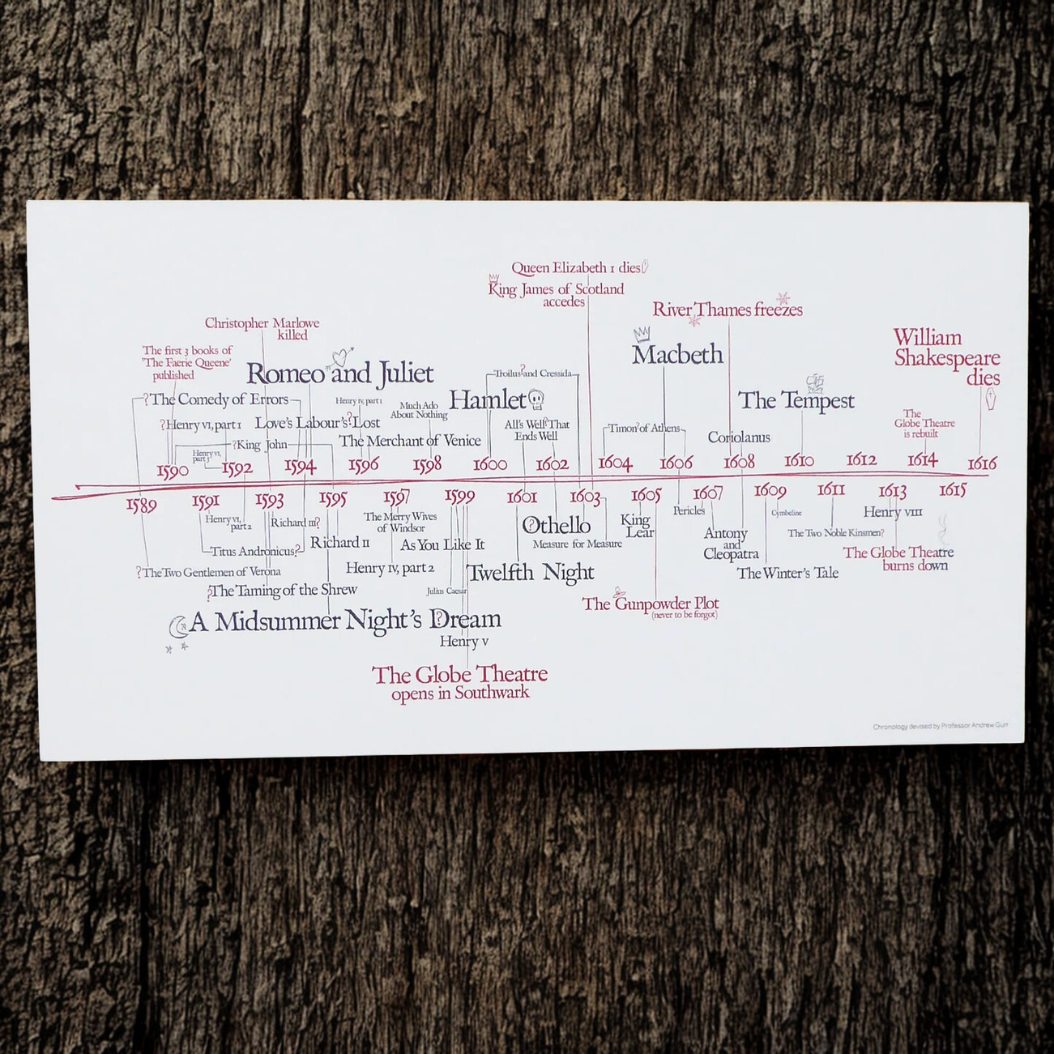 Queen Elizabeth I dies
King James of Scotland
accedes
River Thames freezes
Christopher Marlowe
killed
The first 3 books of
'The Faerie Queene'
published
Romeo and Juliet
Troilus? and Cressida
Hamlet
Macbeth
William
Shakespeare
dies
?The Comedy of Errors
Henry IV, part 1
Much Ado
About Nothing
The Tempest
?Henry VI, part 1
Love's Labour's? Lost
All's Well? That
Ends Well
Timon? of Athens
The
Globe Theatre
is rebuilt
?King John
The Merchant of Venice
Coriolanus
Henry VI,
part 3
1590
1592
1594
1596
1598
1600
1602
1604
1606
1608
1610
1612
1614
1616
1589
1591
1593
1595
1597
1599
1601
1603
1605
1607
1609
1611
1613
1615
Henry VI,
part 2
Richard III?
The Merry Wives
of Windsor
?Othello
King
Lear
Pericles
Cymbeline
Henry VIII
Titus Andronicus?
Richard II
As You Like It
Measure for Measure
Antony
and
Cleopatra
The Two Noble Kinsmen?
The Globe Theatre
burns down
?The Two Gentlemen of Verona
Henry IV, part 2
Twelfth Night
The Winter's Tale
?The Taming of the Shrew
Julius Caesar
The Gunpowder Plot
(never to be forgot)
A Midsummer Night's Dream
?
Henry V
The Globe Theatre
opens in Southwark
Chronology devised by Professor Andrew Gurr